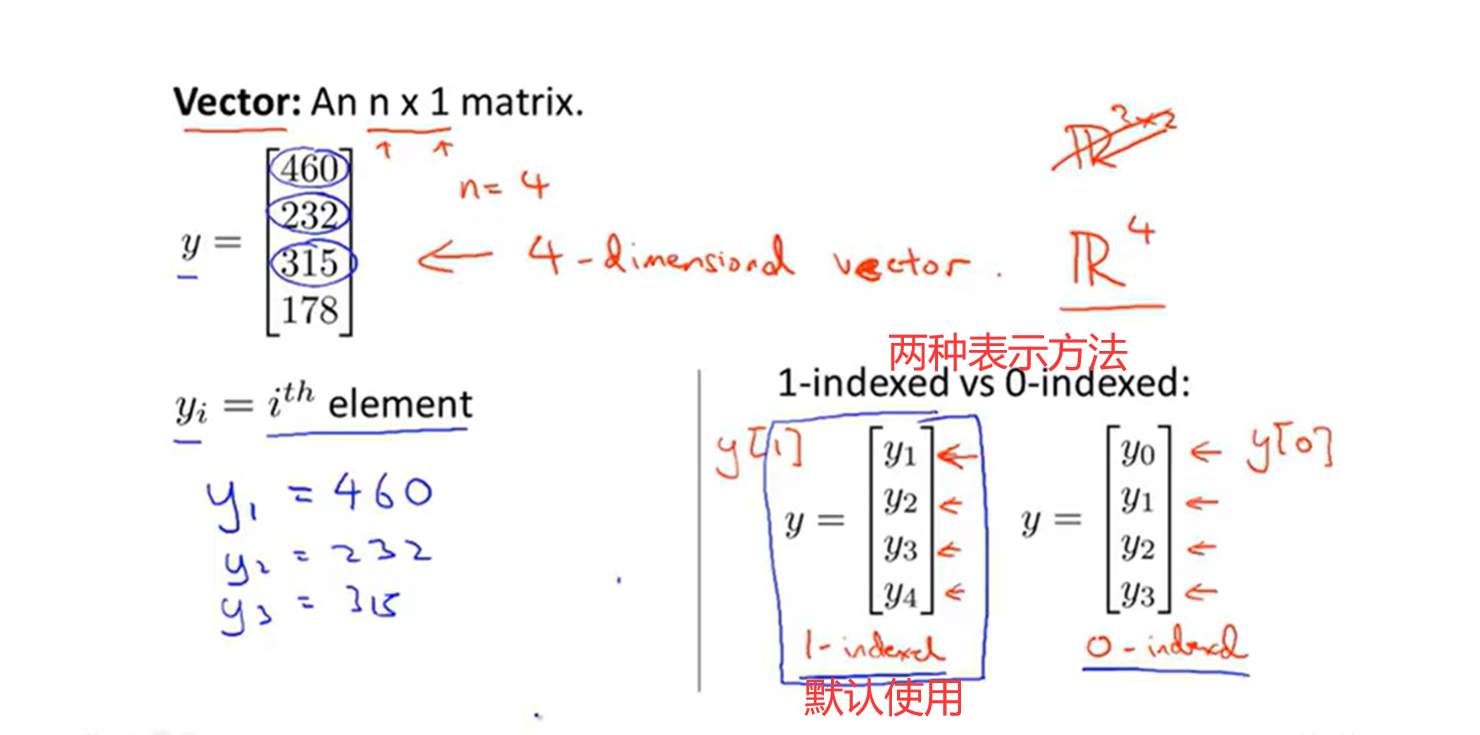 Vector: An n x 1 matrix.
y = [460 232 315 178]
n = 4
← 4-dimensional vector.
ℝ³ˣ²
ℝ⁴
yᵢ = iᵗʰ element
y₁ = 460
y₂ = 232
y₃ = 315
两种表示方法
1-indexed vs 0-indexed:
y[1]
y = [y₁ y₂ y₃ y₄]
1-indexed
默认使用
y = [y₀ y₁ y₂ y₃]
y[0]
0-indexed